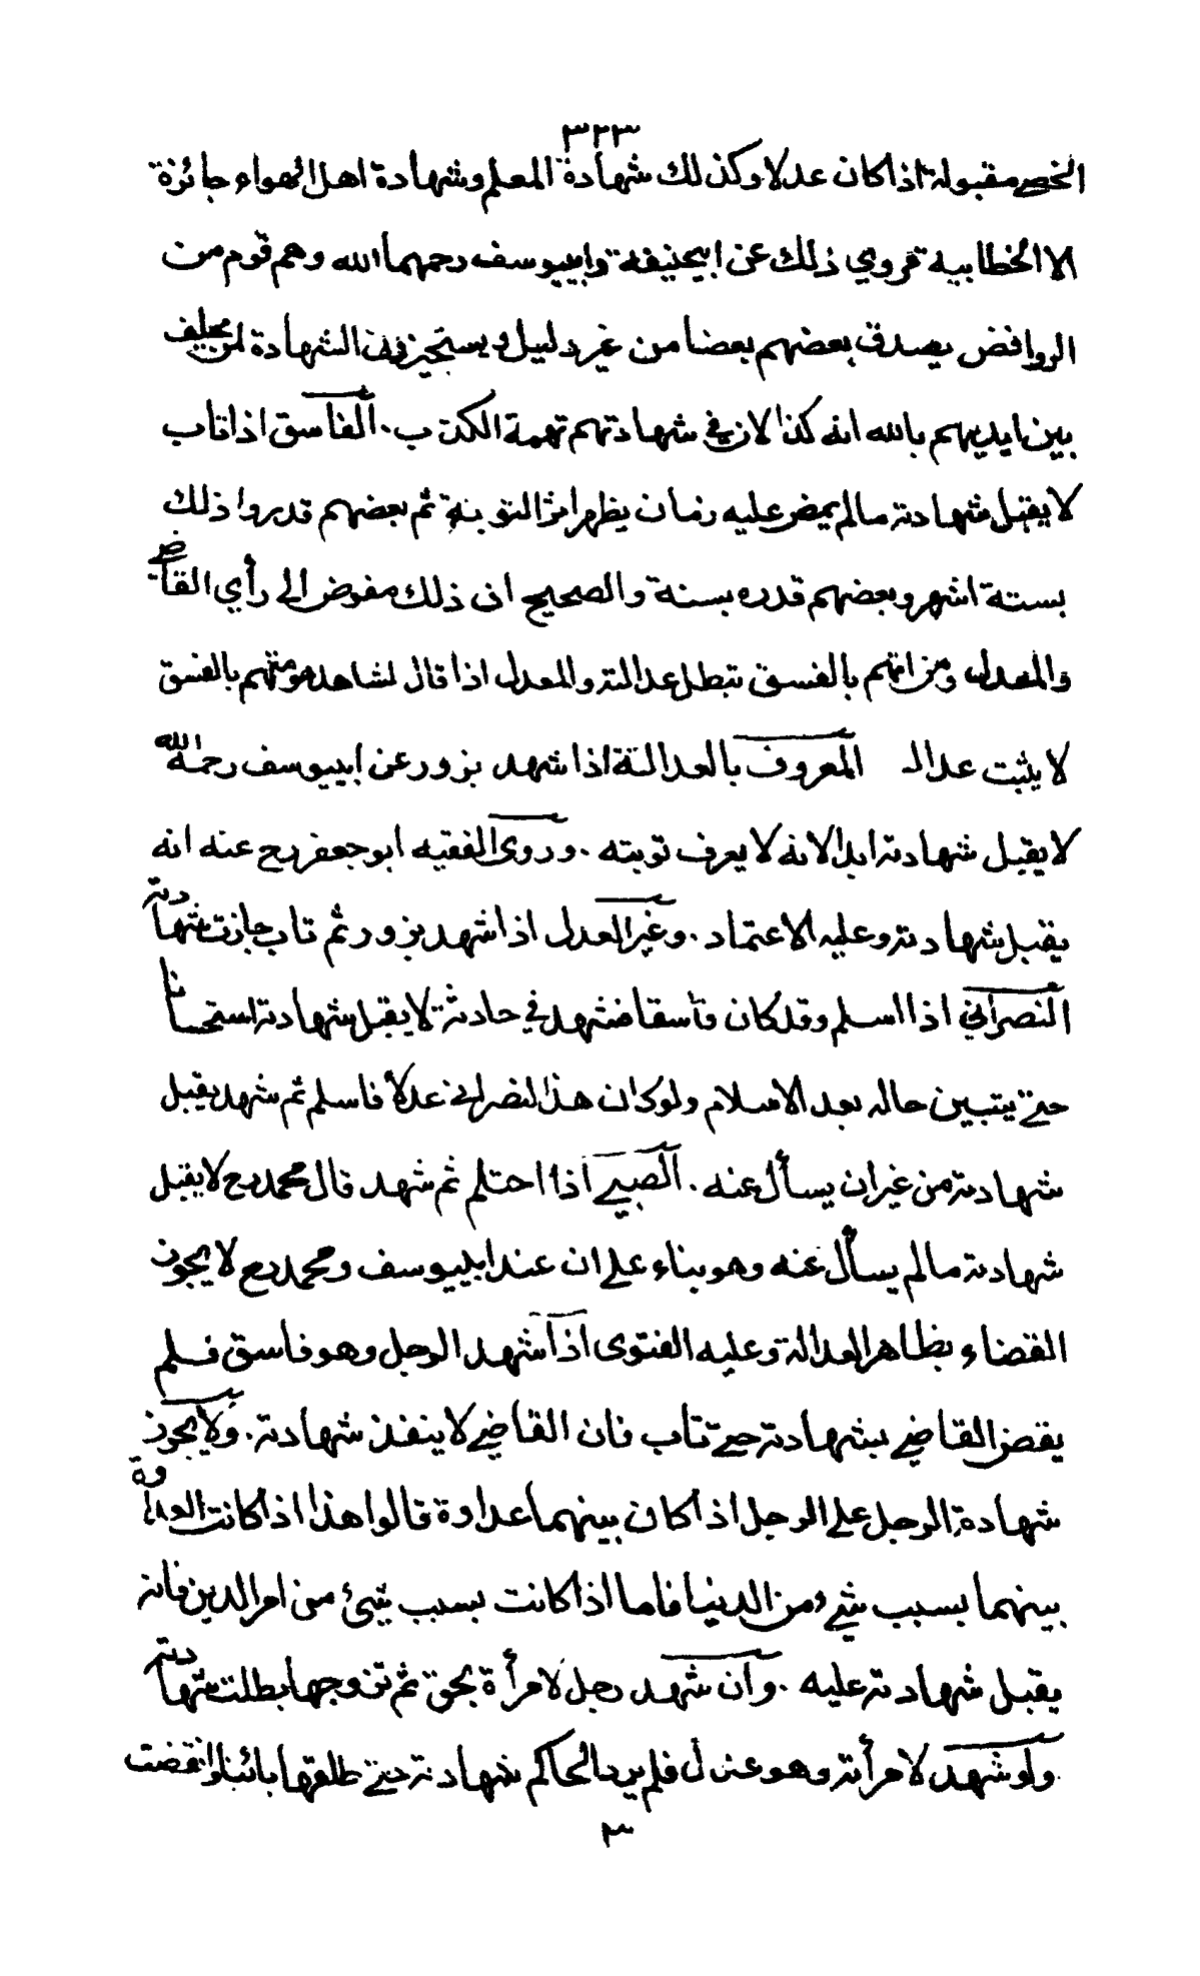 ٣٢٣
الخصي مقبولة اذا كان عدلا وكذلك شهادة المعلم وشهادة اهل الهواء جائزة
الا الخطابية فروي ذلك عن ابيحنيفة وابييوسف رحمهما الله وهم قوم من
الروافض يصدق بعضهم بعضا من غير دليل ويستجيزون الشهادة لمن يحلف
بين ايديهم بالله انه كذا لان في شهادتهم تهمة الكذب . الفاسق اذا تاب
لا يقبل شهادته مالم يمض عليه زمان يظهر اثر التوبة ثم بعضهم قدروا ذلك
بستة اشهر وبعضهم قدره بسنة والصحيح ان ذلك مفوض الى رأي القاضي
والمعدل ومن اتهم بالفسق تبطل عدالته والمعدل اذا قال لشاهد هو متهم بالفسق
لا يثبت عدالـ المعروف بالعدالة اذا شهد بزور عن ابييوسف رحمه الله
لا يقبل شهادته ابدا لانه لا يعرف توبته . وروى الفقيه ابو جعفر رح عنه انه
يقبل شهادته وعليه الاعتماد . وغير العدل اذا شهد بزور ثم تاب جازت شهادته
النصراني اذا اسلم وقد كان فاسقا فشهد في حادثة لا يقبل شهادته استحسانا
حتى يتبين حاله بعد الاسلام ولو كان هذا النصراني عدلا فاسلم ثم شهد يقبل
شهادته من غير ان يسأل عنه . الصبي اذا احتلم ثم شهد قال محمد رح لا يقبل
شهادته مالم يسأل عنه وهو بناء على ان عند ابييوسف ومحمد رح لا يجوز
القضاء بظاهر العدالة وعليه الفتوى اذا شهد الرجل وهو فاسق فلم
يقض القاضي بشهادته حتى تاب فان القاضي لا ينفذ شهادته . ولا يجوز
شهادة الرجل على الرجل اذا كان بينهما عداوة قالوا هذا اذا كانت العداوة
بينهما بسبب شيء من الدنيا فاما اذا كانت بسبب شيئ من امر الدين فانه
يقبل شهادته عليه . وان شهد رجل لامرأة بحق ثم تزوجها بطلت شهادته
ولو شهد لامرأته وهو عدل فلم يرد الحاكم شهادته حتى طلقها بائنا وانقضت
٣